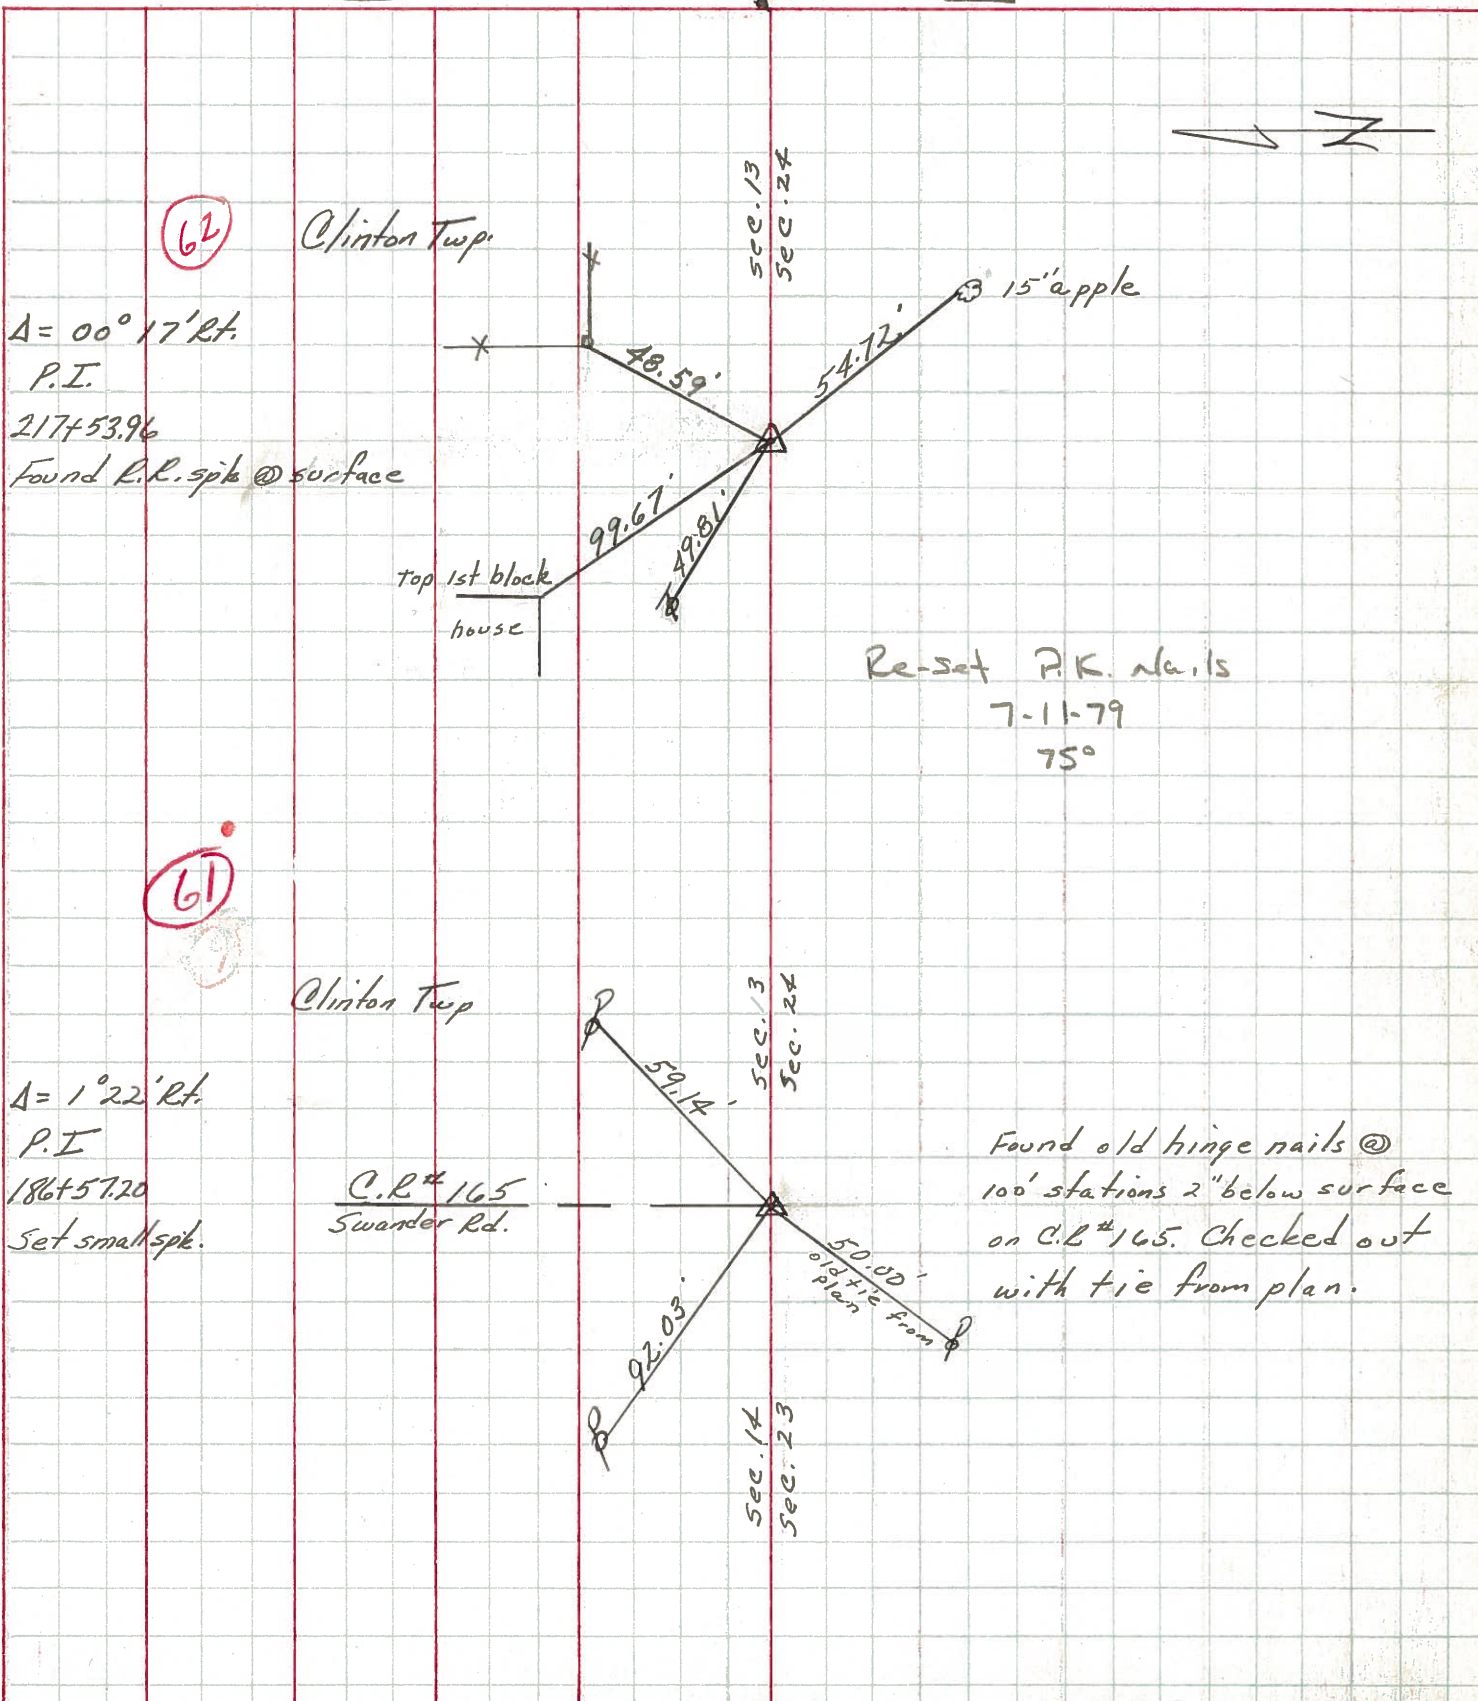 Z
sec. 13
sec. 24
62
Clinton Twp.
15" apple
Δ = 00° 17' Rt.
P.I.
217+53.96
Found R.R. spk @ surface
48.59'
54.72'
99.67'
49.81'
Top 1st block
house
Re-set P.K. Nails
7-11-79
75°
61
Clinton Twp
sec. 13
sec. 24
Δ = 1° 22' Rt.
P.I
186+57.20
Set small spk.
59.14'
C.R # 165
Swander Rd.
50.00'
old tie from
plan
92.03'
Found old hinge nails @
100' stations 2" below surface
on C.R #165. Checked out
with tie from plan.
sec. 14
sec. 23